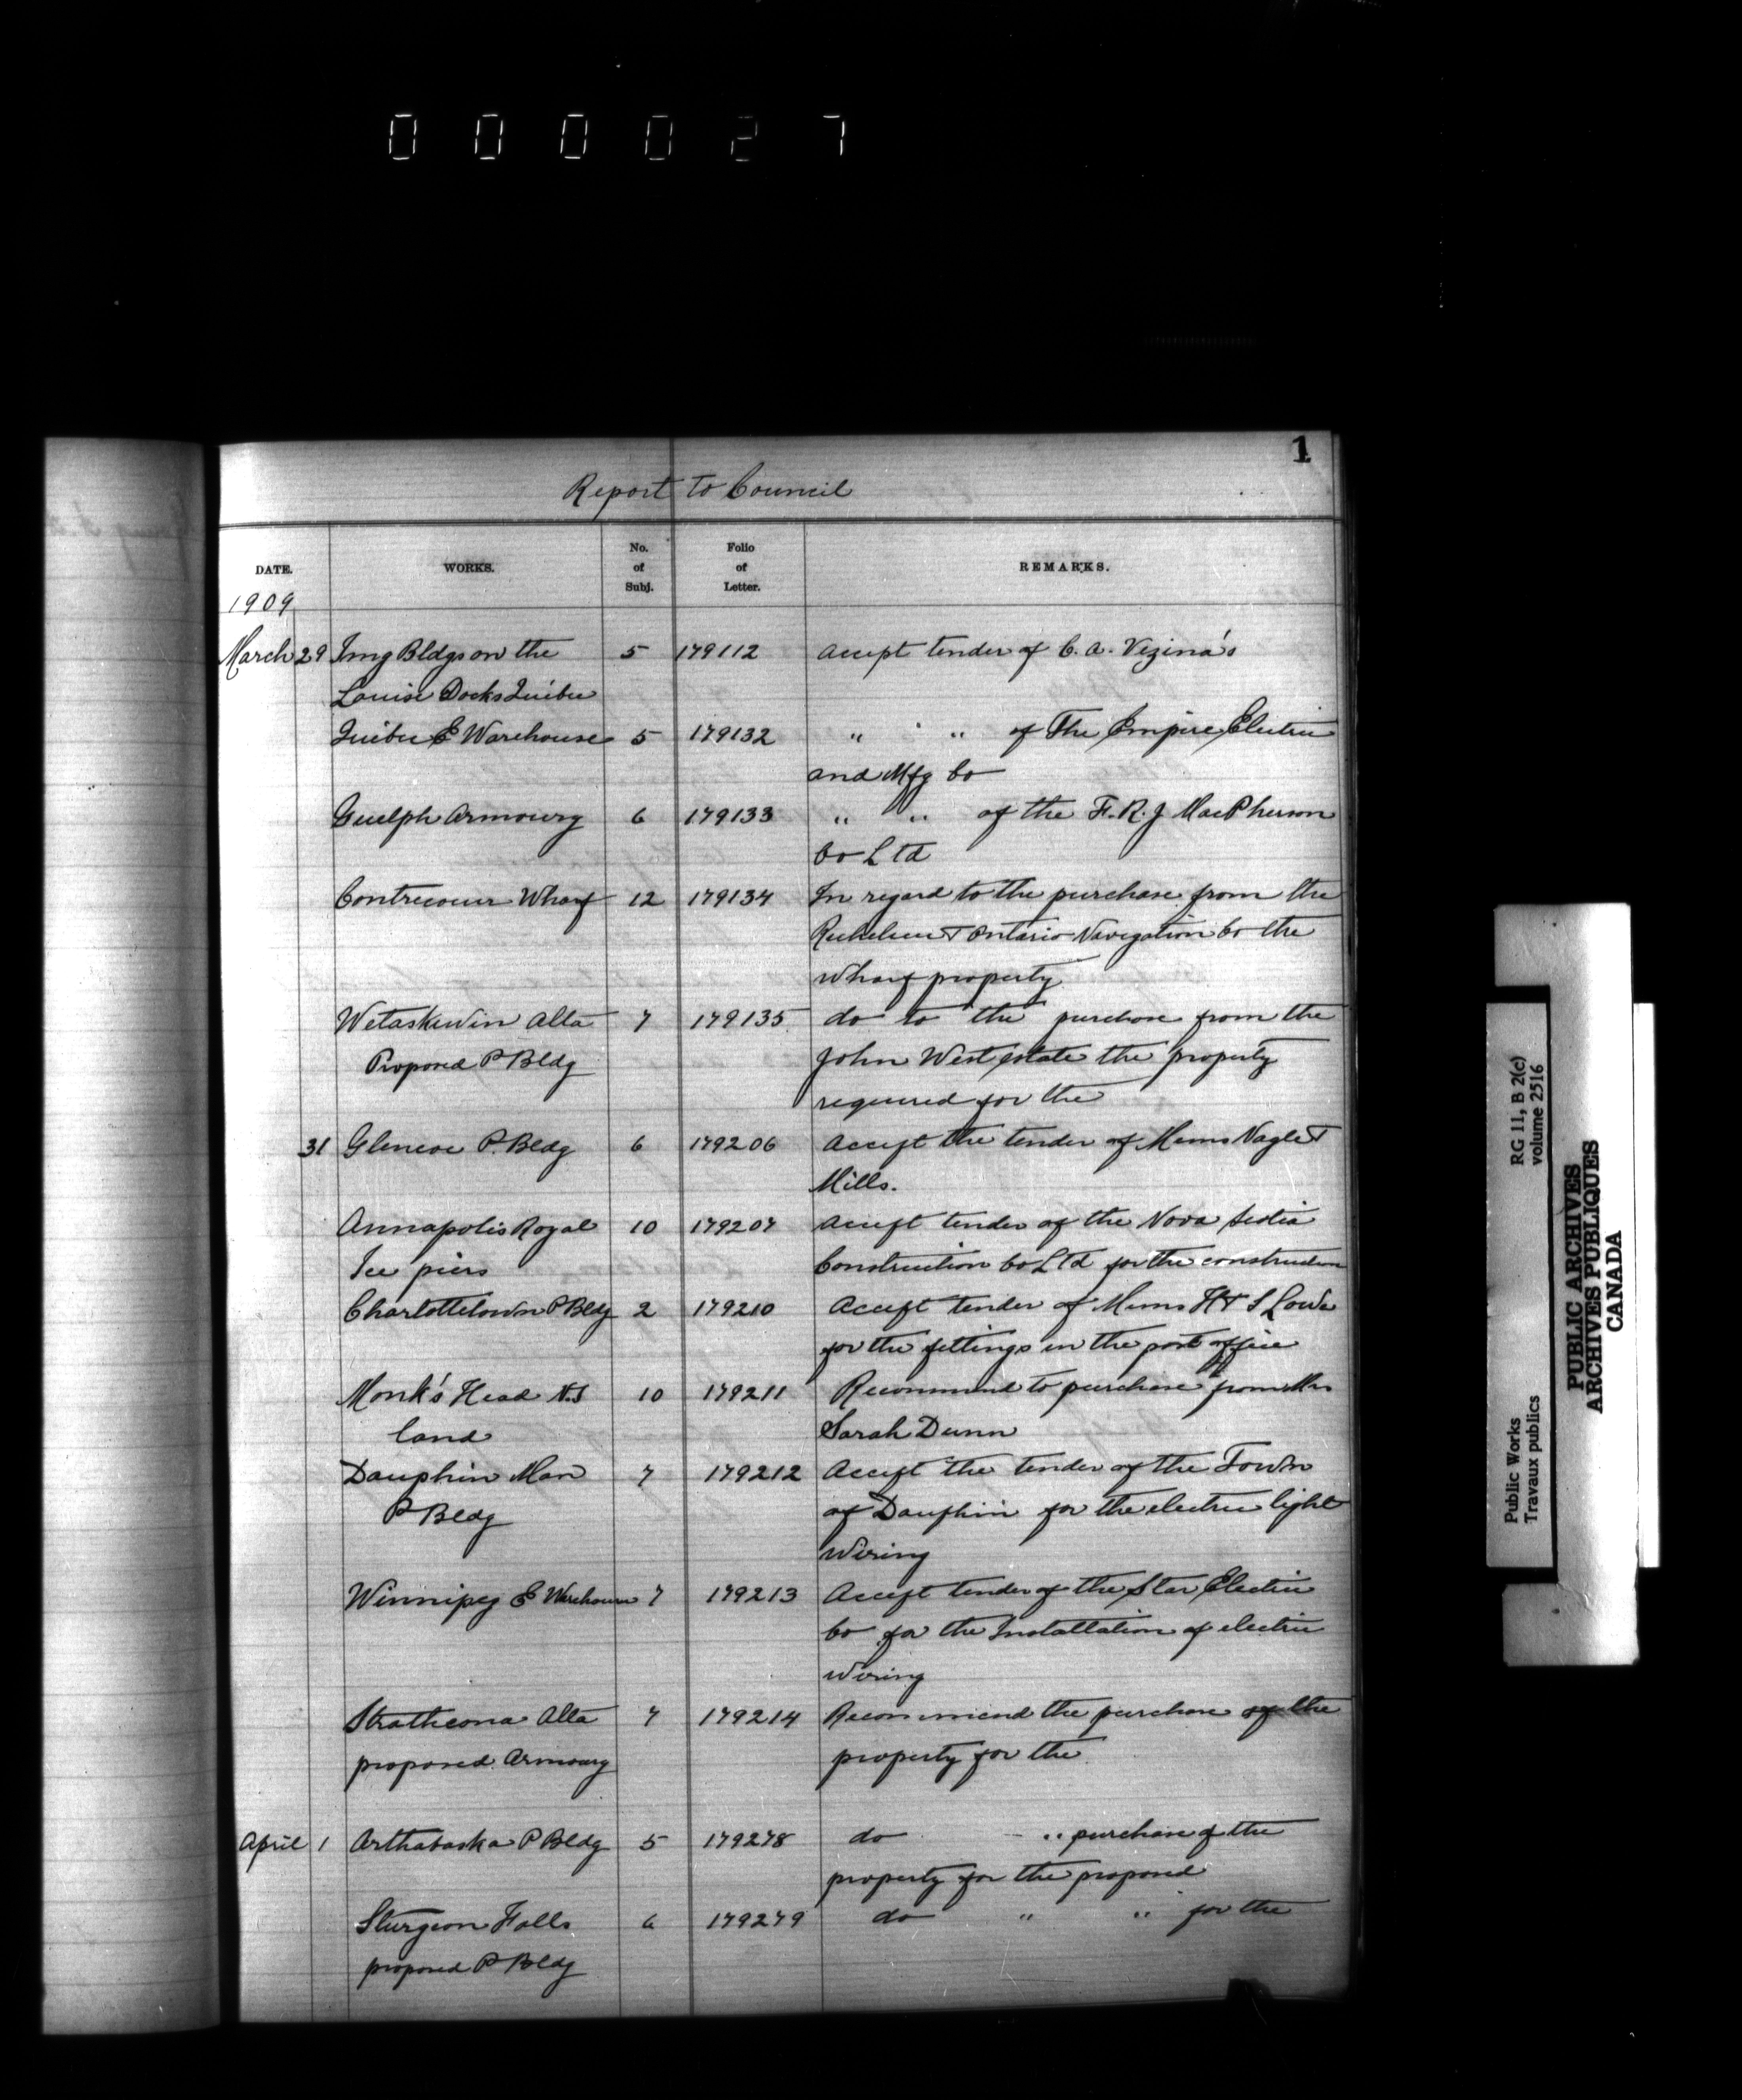 000027
1
Report to Council
DATE. WORKS. No. of Subj. Folio of Letter. REMARKS.
1909
March 29 Img Bldgs on the 5 179112 Accept tender of C. A. Vezina's
Louise Docks Quebec
Quebec E Warehouse 5 179132 " " of The Empire Electric
and Mfg Co
Guelph Armoury 6 179133 " " of the F. R. J MacPherson
Co Ltd
Contrecoeur Wharf 12 179134 In regard to the purchase from the
Richelieu & Ontario Navigation Co the
wharf property
Wetaskiwin Alta 7 179135 do to the purchase from the
Proposed P Bldg John West estate the property
required for the
31 Glencoe P. Bldg 6 179206 Accept the tender of Messrs Nagle &
Mills.
Annapolis Royal 10 179207 Accept tender of the Nova Scotia
Ice piers Construction Co Ltd for the construction
Charlottetown P Bldg 2 179210 Accept tender of Messrs H & S Lowe
for the fittings in the post office
Monk's Head N.S 10 179211 Recommend to purchase from Mrs
land Sarah Dunn
Dauphin Man 7 179212 Accept the tender of the Town
P Bldg of Dauphin for the electric light
wiring
Winnipeg E Warehouse 7 179213 Accept tender of the Star Electric
Co for the Installation of electric
wiring
Strathcona Alta 7 179214 Recommend the purchase of the
proposed Armoury property for the
April 1 Arthabaska P Bldg 5 179278 do " purchase of the
property for the proposed
Sturgeon Falls 6 179279 do " " for the
proposed P Bldg
Public Works RG 11, B 2(c)
Travaux publics volume 2516
PUBLIC ARCHIVES
ARCHIVES PUBLIQUES
CANADA